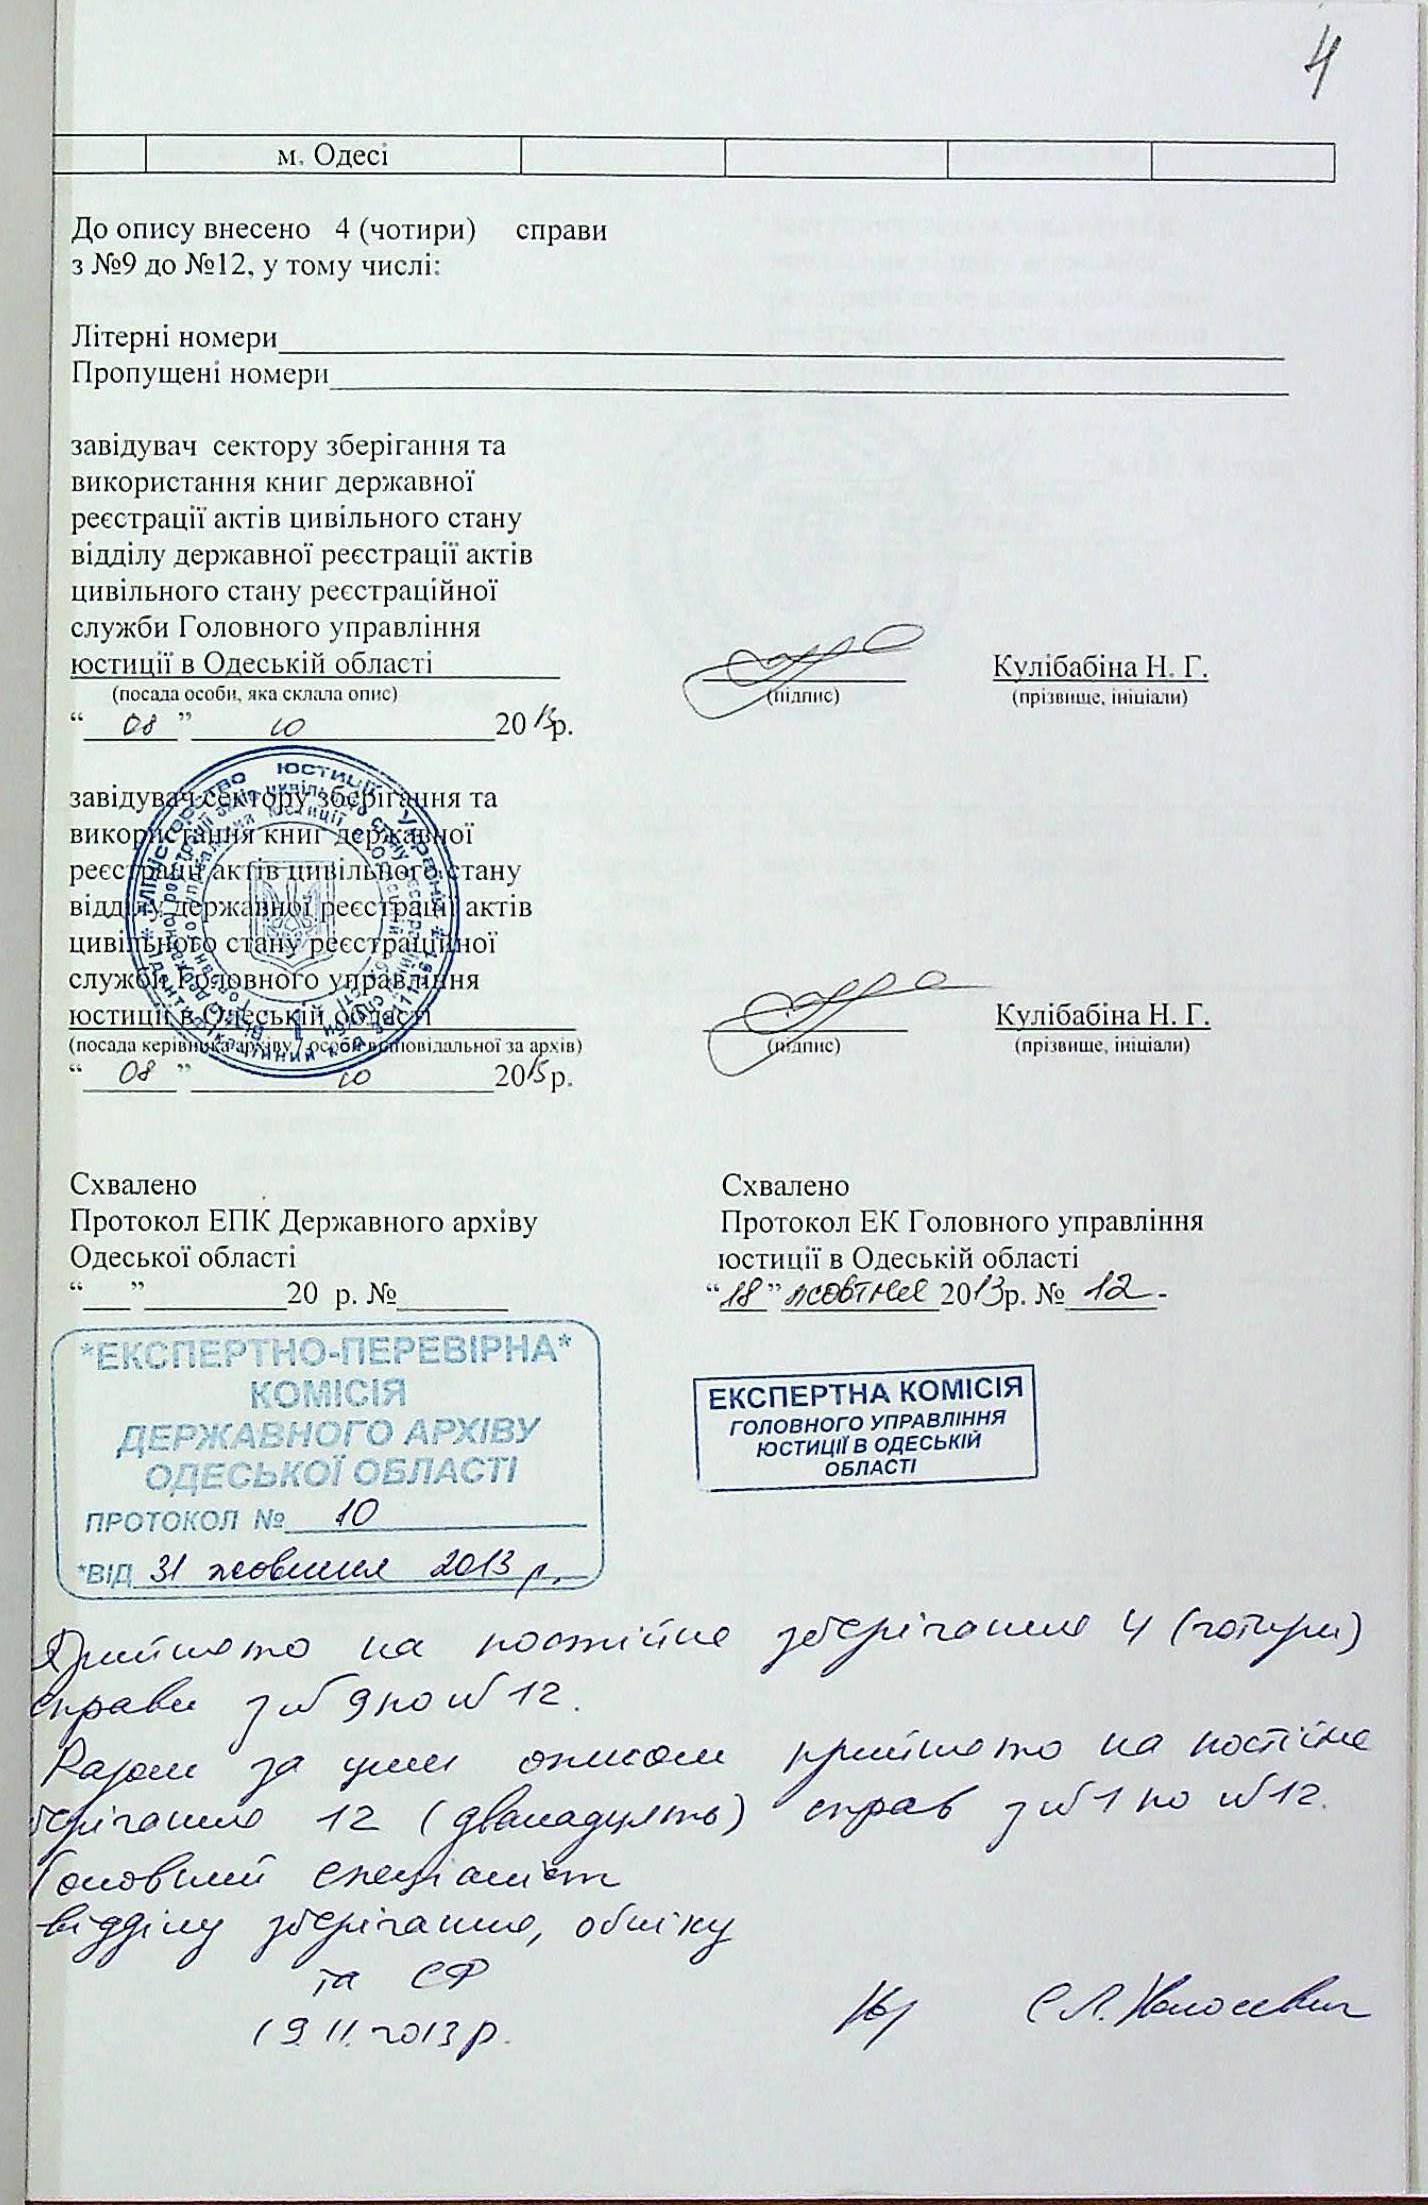 4
м. Одесі
До опису внесено 4 (чотири) справи
з №9 до №12, у тому числі:
Літерні номери
Пропущені номери
завідувач сектору зберігання та
використання книг державної
реєстрації актів цивільного стану
відділу державної реєстрації актів
цивільного стану реєстраційної
служби Головного управління
юстиції в Одеській області
Кулібабіна Н. Г.
(посада особи, яка склала опис)
(підпис)
(прізвище, ініціали)
“ 08 ” 10 2013р.
завідувач сектору зберігання та
використання книг державної
реєстрації актів цивільного стану
відділу державної реєстрації актів
цивільного стану реєстраційної
служби Головного управління
юстиції в Одеській області
Кулібабіна Н. Г.
(посада керівника архіву / особи відповідальної за архів)
(підпис)
(прізвище, ініціали)
“ 08 ” 10 2013р.
Міністерство юстиції України
Схвалено
Протокол ЕПК Державного архіву
Одеської області
“___”__________20 р. №_______
Схвалено
Протокол ЕК Головного управління
юстиції в Одеській області
“18” жовтня 2013р. № 12
*ЕКСПЕРТНО-ПЕРЕВІРНА*
КОМІСІЯ
ДЕРЖАВНОГО АРХІВУ
ОДЕСЬКОЇ ОБЛАСТІ
ПРОТОКОЛ № 10
*ВІД 31 жовтня 2013 р.
ЕКСПЕРТНА КОМІСІЯ
ГОЛОВНОГО УПРАВЛІННЯ
ЮСТИЦІЇ В ОДЕСЬКІЙ
ОБЛАСТІ
Прийнято на постійне зберігання 4 (чотири)
справи з №9 по №12.
Разом за цим описом прийнято на постійне
зберігання 12 (дванадцять) справ з №1 по №12.
Головний спеціаліст
відділу зберігання, обліку
та СФ
19.11.2013 р.